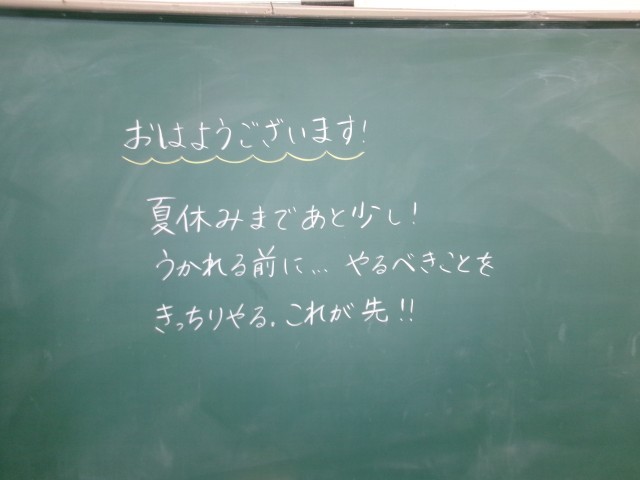 おはようございます!
夏休みまであと少し!
うかれる前に... やるべきことを
きっちりやる. これが先!!